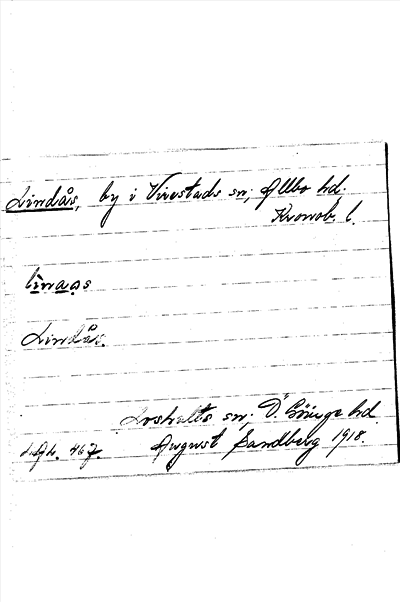 Lindås, by i Virestads sn, Allbo hd,
Kronob. l.
linaas
Lindås.
Loshults sn, Ö. Göinge hd
August Sandberg 1918.